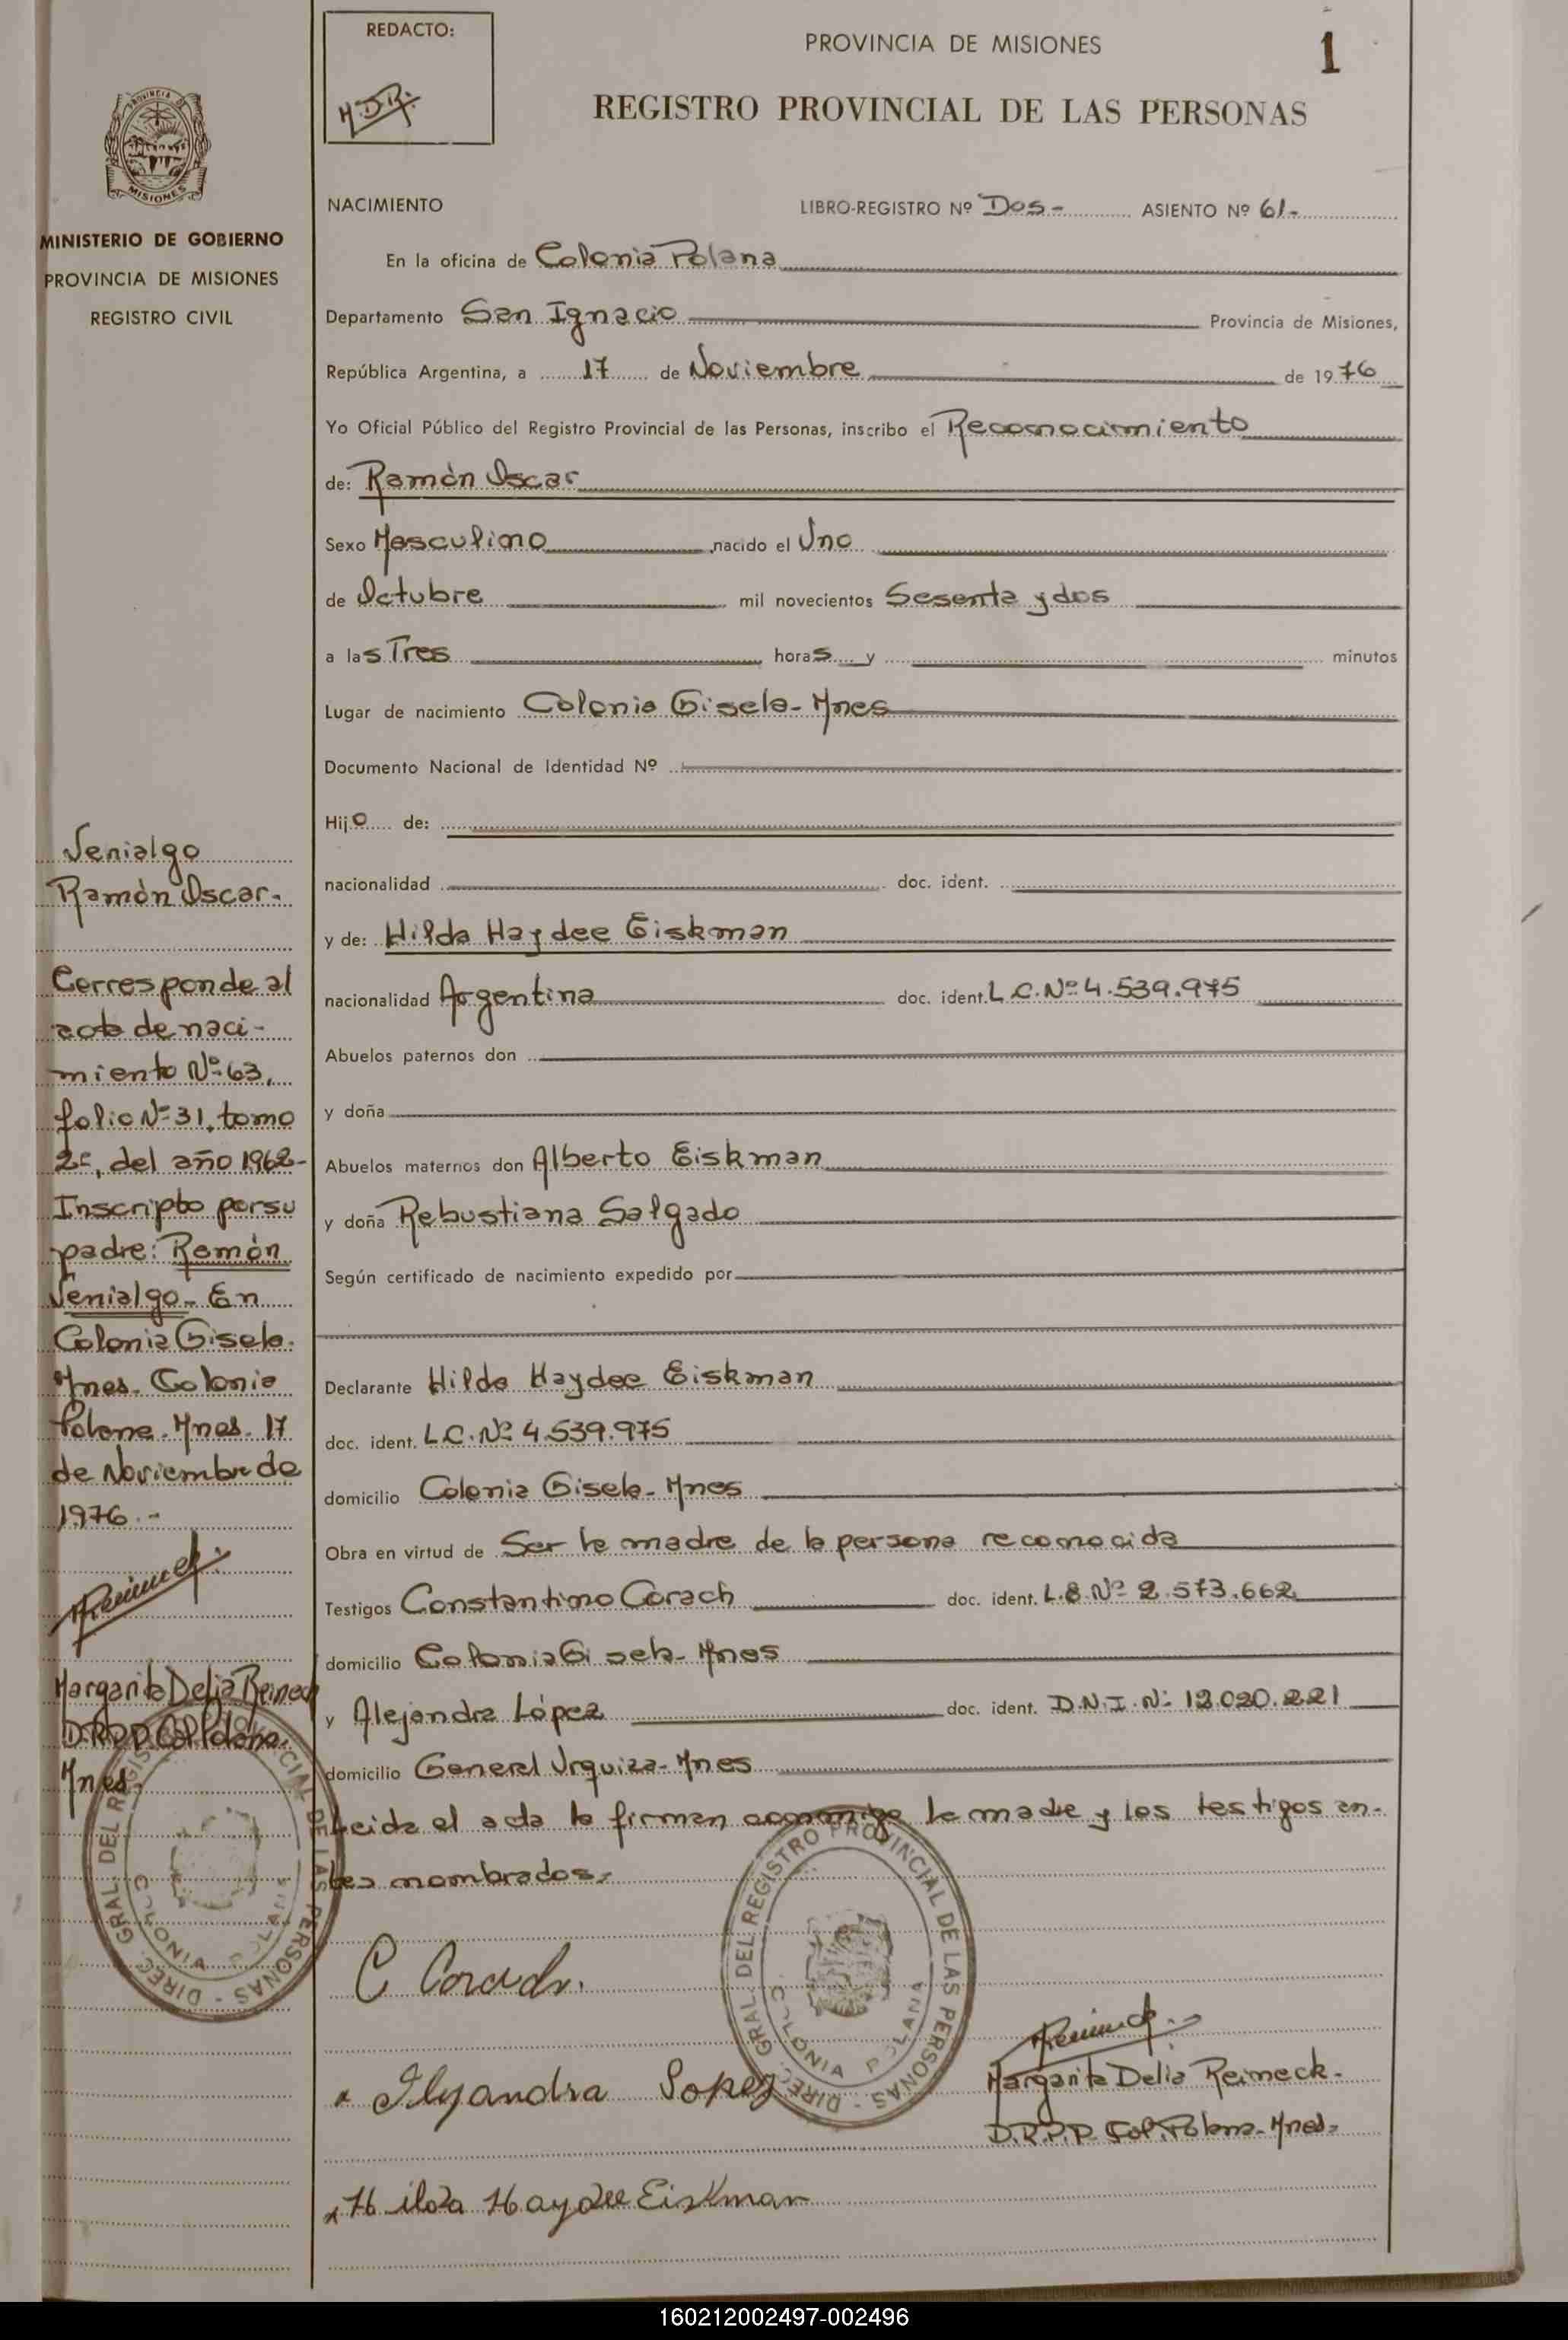 REDACTO:
M.D.R.
PROVINCIA DE MISIONES
1
REGISTRO PROVINCIAL DE LAS PERSONAS
PROVINCIA DE
MISIONES
MINISTERIO DE GOBIERNO
PROVINCIA DE MISIONES
REGISTRO CIVIL
NACIMIENTO LIBRO-REGISTRO Nº Dos- ASIENTO Nº 61-
En la oficina de Colonia Polana
Departamento San Ignacio Provincia de Misiones,
República Argentina, a 17 de Noviembre de 1976
Yo Oficial Público del Registro Provincial de las Personas, inscribo el Reconocimiento
de: Ramón Oscar
Sexo Masculino nacido el Uno
de Octubre mil novecientos Sesenta y dos
a las Tres horas y minutos
Lugar de nacimiento Colonia Gisela- Mnes
Documento Nacional de Identidad Nº
Hijo de:
nacionalidad doc. ident.
y de: Hilda Haydee Eiskman
nacionalidad Argentina doc. ident. L.C.Nº 4.539.975
Abuelos paternos don
y doña
Abuelos maternos don Alberto Eiskman
y doña Rebustiana Salgado
Según certificado de nacimiento expedido por
Declarante Hilda Haydee Eiskman
doc. ident. L.C.Nº 4.539.975
domicilio Colonia Gisela- Mnes
Obra en virtud de Ser la madre de la persona reconocida
Testigos Constantino Corach doc. ident. L.E.Nº 2.573.662
domicilio Colonia Gisela- Mnes
y Alejandra López doc. ident. D.N.I.Nº 12.020.221
domicilio General Urquiza- Mnes
Leida el acta la firman conmigo la madre y los testigos an-
tes nombrados.
C Corach.
Alejandra Lopez
Hilda Haydee Eiskman
Margarita Delia Reineck.
D.R.P.P. Col. Polana- Mnes.
DIREC. GRAL. DEL REGISTRO PROVINCIAL DE LAS PERSONAS
COLONIA POLANA
Venialgo
Ramón Oscar.
Corresponde al
acta de naci-
miento Nº 63,
folio Nº 31, tomo
2º, del año 1962-
Inscripto por su
padre: Ramón
Venialgo- En
Colonia Gisela.
Mnes. Colonia
Polana. Mnes. 17
de Noviembre de
1976.-
Margarita Delia Reineck
D.R.P.P. Col Polana.
Mnes.
DIREC. GRAL. DEL REGISTRO PROVINCIAL DE LAS PERSONAS
COLONIA POLANA
160212002497-002496